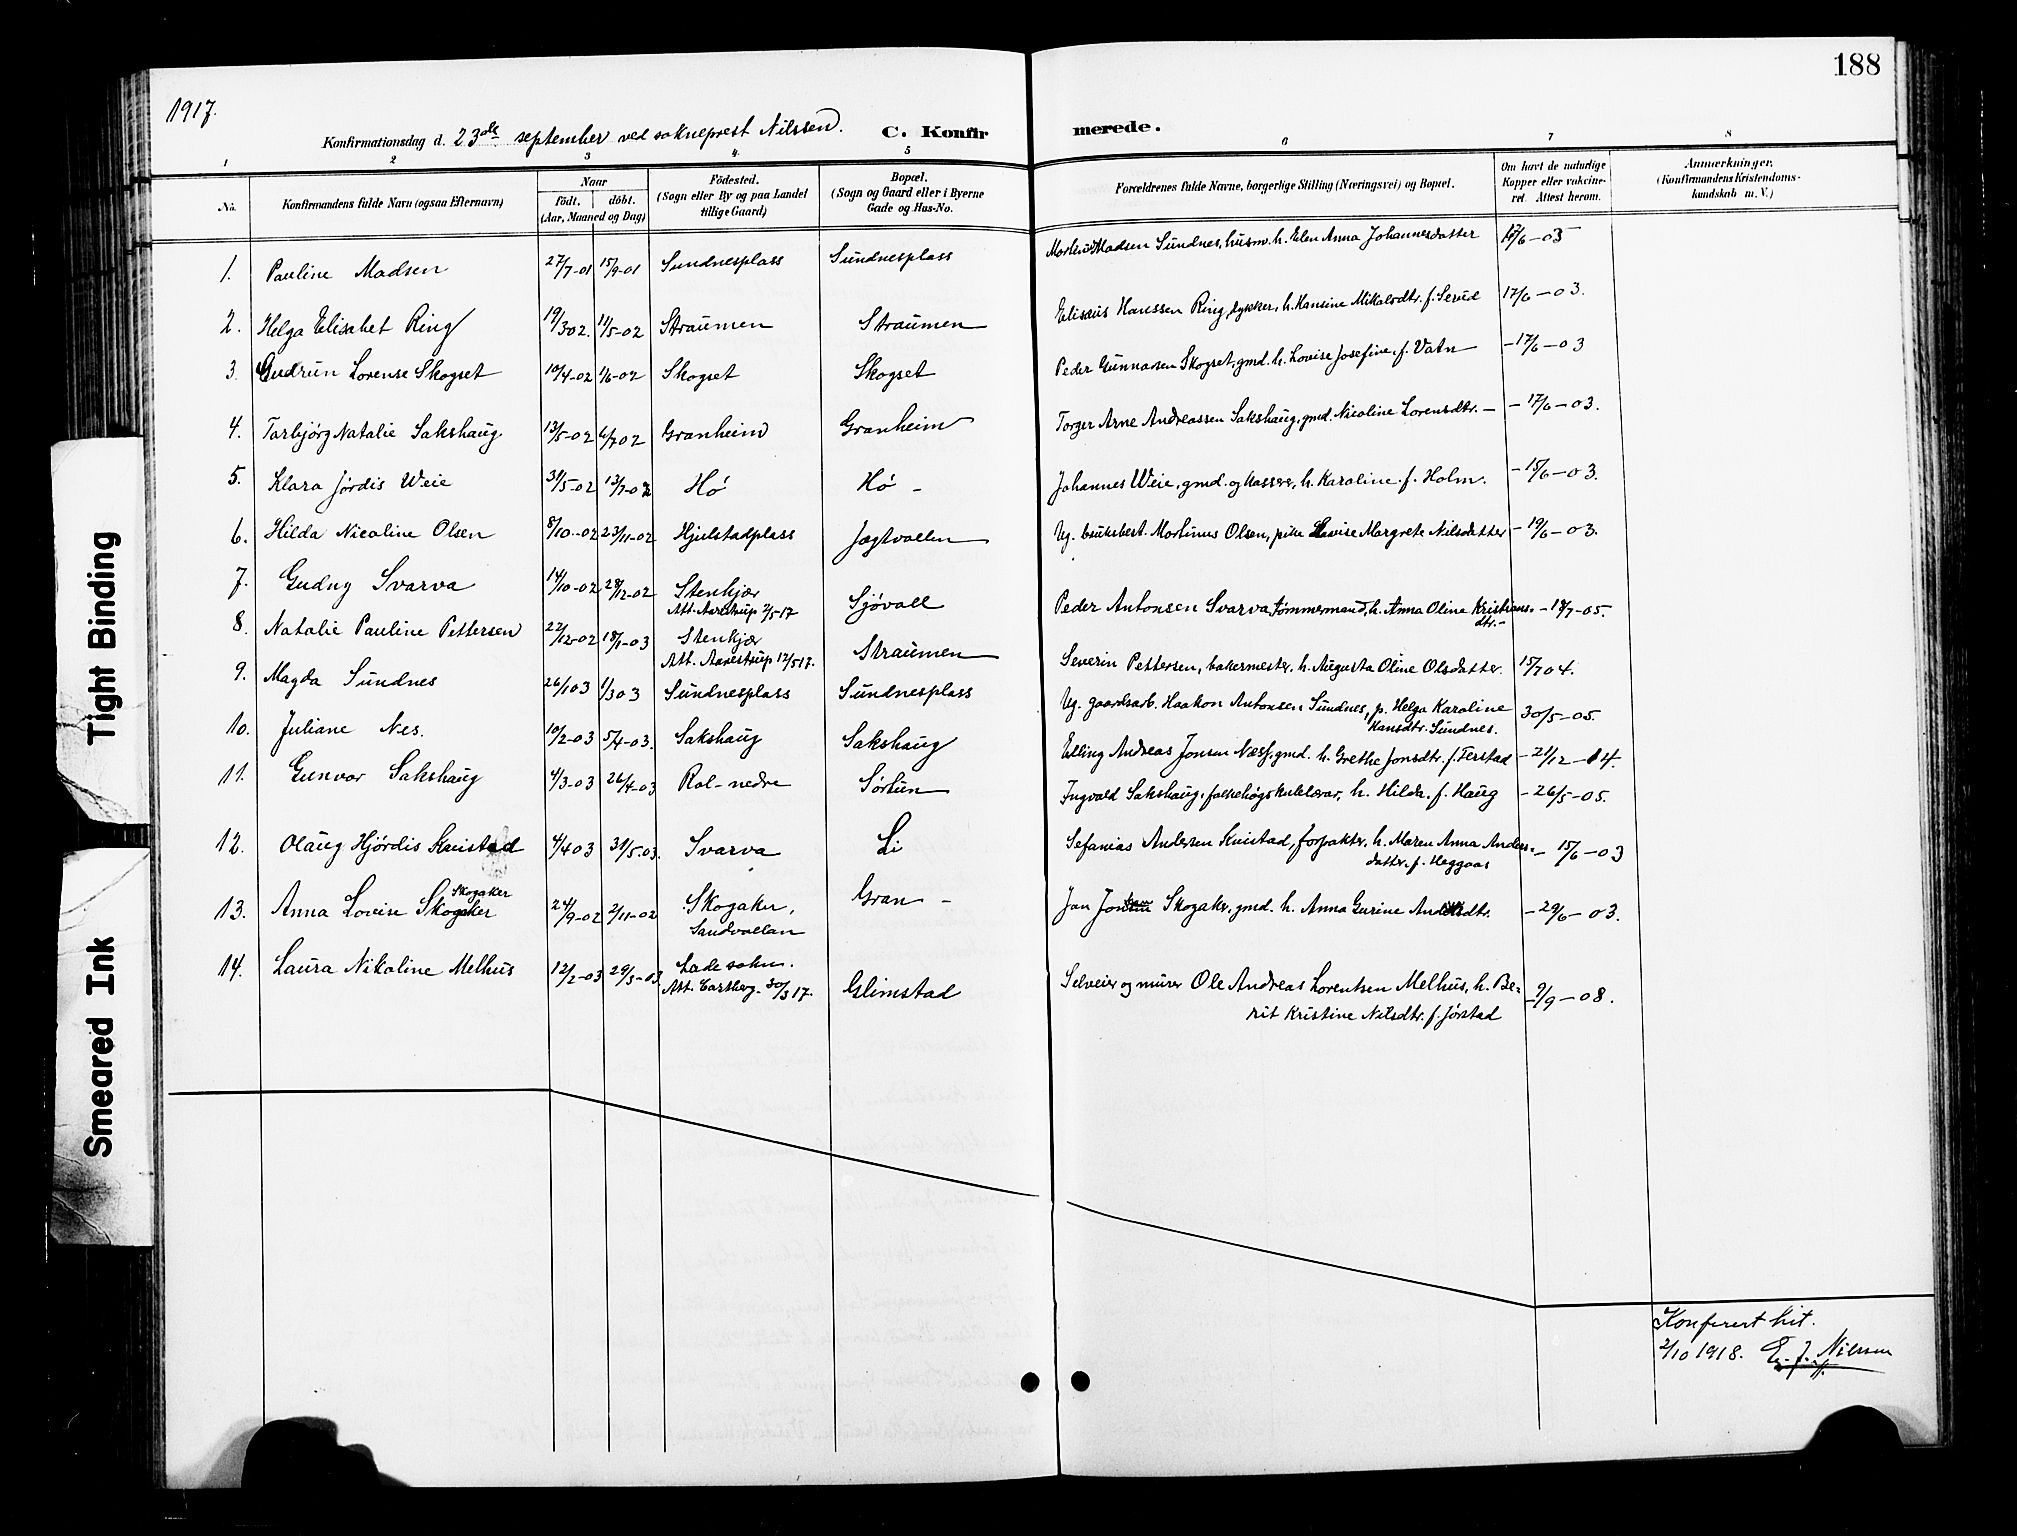 188
1917.
Konfirmationsdag d. 23de september ved sokneprest Nilssen. C. Konfirmerede.
1 2 3 4 5 6 7 8
No. Konfirmandens fulde Navn (ogsaa Efternavn) Naar født. døbt. (Aar, Maaned og Dag) Födested. (Sogn eller By og paa Landet tillige Gaard) Bopæl. (Sogn og Gaard eller i Byerne Gade og Hus-No. Forældrenes fulde Navne, borgerlige Stilling (Næringsvei) og Bopæl. Om havt de naturlige Kopper eller vakcineret. Attest herom. Anmærkninger, (Konfirmandens Kristendomskundskab m. V.)
1. Pauline Madsen 27/7-01 15/9-01 Sundnesplass Sundnesplass Madsen Sundnes, husm. h. Elen Anna Johannesdatter /6-03
2. Helga Elisabet Ring 19/3 02. 11/5-02 Straumen Straumen Elisæus Hanssen Ring, dykker, h. Hansine Mikalsdtr. f. Serud 17/6-03.
3. Gudrun Lorense Skogset 10/4-02 1/6-02 Skogset Skogset Peder Gunnarsen Skogset, gmd. h. Lovise Josefine, f. Vatn -17/6-03
4. Torbjørg Natalie Sakshaug 13/5-02 6/7 02 Granheim Granheim Torger Arne Andreassen Sakshaug, gmd. Nicoline Lorensdtr. - -17/6-03.
5. Klara Jørdis Weie 31/5-02 13/7-02 Hó Hó - Johannes Weie, gmd. og kasser, h. Karoline f. Holm. -15/6-03.
6. Hilda Nicoline Olsen 8/10-02 23/11-02 Hjelstadplass Jægtvollen Ug. bruksbest. Mortinus Olsen, pike Lovise Margrete Nilsdatter -19/6-03.
7. Gudny Svarva 14/10-02 28/12-02 Stenkjær Sjøvoll Peder Antonsen Svarva, tømmermand, h. Anna Oline Kristians- -18/7-05.
Att. Aarestrup 2/5-17 dtr.-
8. Natalie Pauline Pettersen 22/12-02 18/1-03 Stenkjær Straumen Severin Pettersen, bakermester, h. Augusta Oline Olsdatter. 15/7 04.
Att. Aarestrup 12/5 17.
9. Magda Sundnes 26/1 03 1/3 03 Sundnesplass Sundnesplass Ug. gaardsarb. Haakon Antonsen Sundnes, p. Helga Karoline 30/5-05.
Hansdtr. Sundnes.
10. Juliane Nes. 10/2-03 5/4-03. Sakshaug Sakshaug Elling Andreas Jonsen Næss, gmd. h. Grethe Jonsdtr. f. Ferstad -21/12-14.
11. Gunvor Sakshaug 4/3-03 26/4-03 Rol-nedre Sørtun Ingvald Sakshaug, folkehøgskulelærar, h. Hilda. f. Haug -26/5-05.
12. Olaug Hjørdis Knistad 4/4 03 31/5.03. Svarva Li Sefanias Andersen Knistad, forpakter, h. Maren Anna Anders- - 15/6-03
datter. f. Heggaas
13. Anna Lovin Skogaker Skogaker 24/9-02 2/11-02 Skogaker, Gran - Jon Jonsen Skogaker, gmd. h. Anna Gurine Andersdtr. -29/6-03.
Sandvollan
14. Laura Nikoline Melhus 12/2-03 29/3-03 Lade sokn. Glimstad Selveier og murer Ole Andreas Lorentsen Melhus, h. Be- -9/9-08.
Att. 30/3 17. rit Kristine Nilsdtr. f. Jørstad
Konferert hit.
2/10 1918. E. J. Nilssen
Tight Binding
Smeared Ink